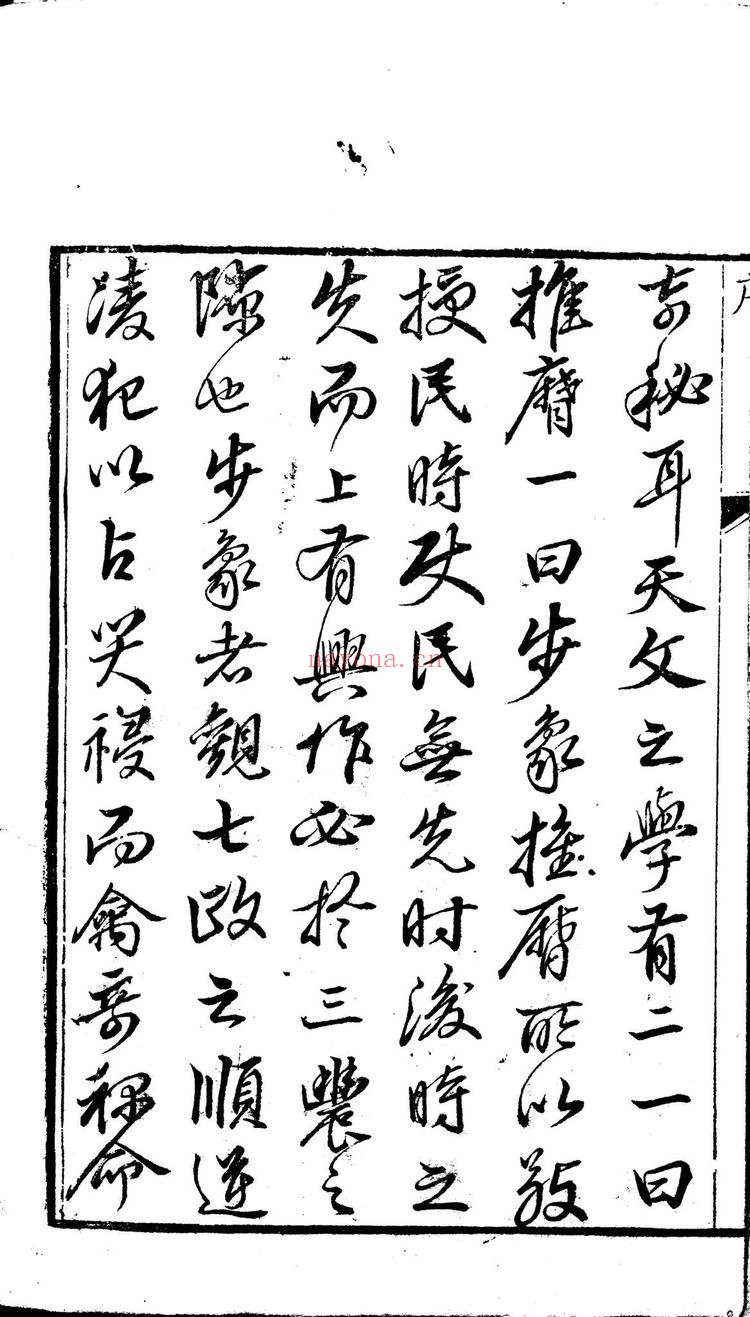 奇秘耳天文之學有二一曰
推曆一曰步象推曆所以敬
授民時使民無先时後時之
失而上有興作必於三農之
隙也步象者觀七政之順逆
凌犯以占災祲而禽奇祿命
naxona.cn
序